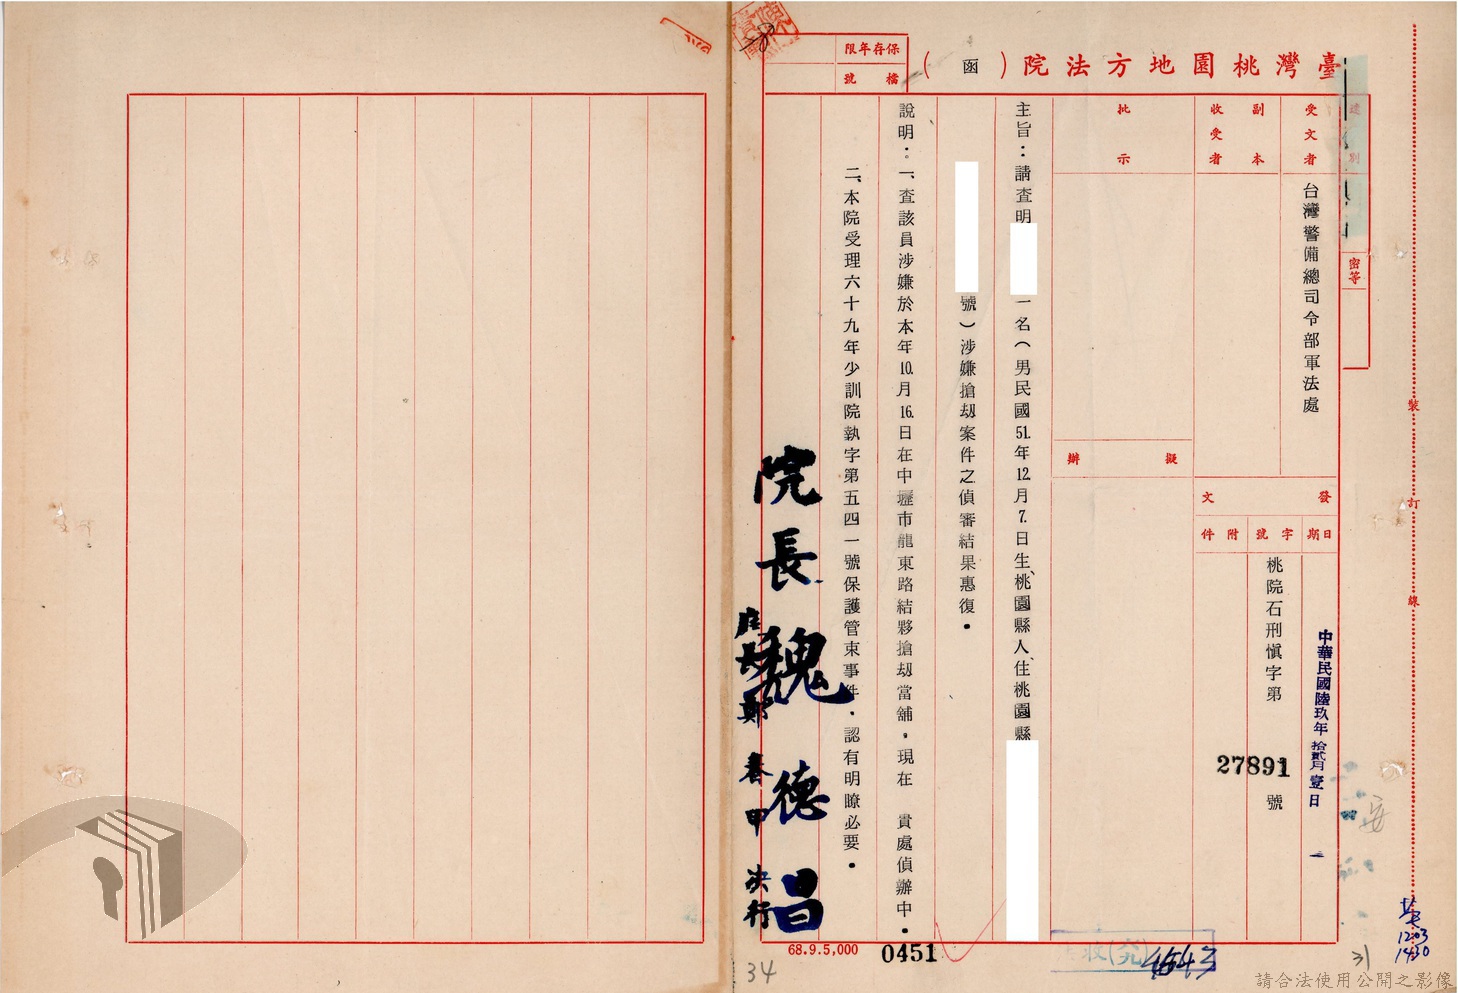 臺灣桃園地方法院（函）
保存年限
檔號
速別
密等
受文者
台灣警備總司令部軍法處
副本收受者
批示
擬辦
發文
日期
中華民國陸玖年拾貳月壹日
字號
桃院石刑慎字第27891號
附件
主旨：請查明
一名（男民國51.年12.月7.日生、桃園縣人、住桃園縣
號）涉嫌搶刼案件之偵審結果惠復。
說明：一、查該員涉嫌於本年10.月16.日在中壢市龍東路結夥搶刼當舖，現在　貴處偵辦中。
二、本院受理六十九年少訓院執字第五四一號保護管束事件，認有明瞭必要。
院長魏德昌
庭長鄭春甲決行
裝訂線
68.9.5,000
0451
34
31
4643
12.03
1430
請合法使用公開之影像